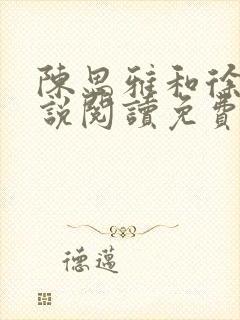 陳思雅和徐
說閱讀免費
德邁